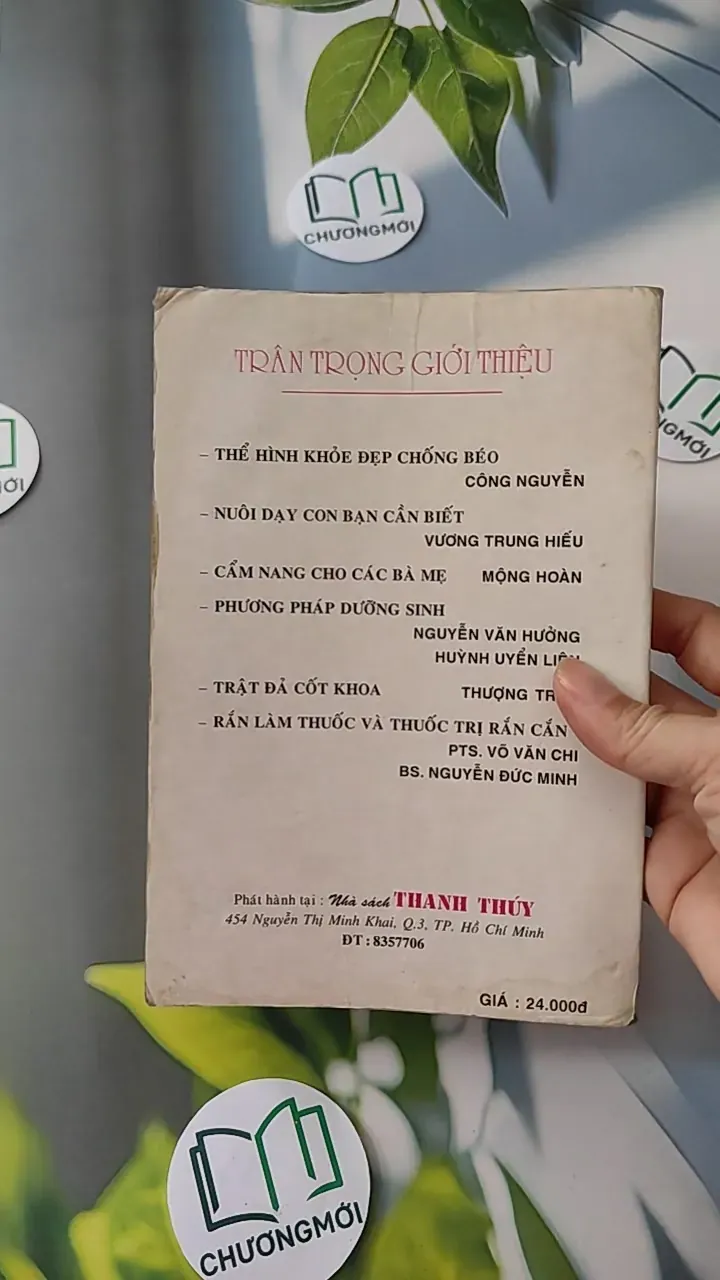 CHƯƠNGMỚI
TRÂN TRỌNG GIỚI THIỆU
– THỂ HÌNH KHỎE ĐẸP CHỐNG BÉO
CÔNG NGUYỄN
– NUÔI DẠY CON BẠN CẦN BIẾT
VƯƠNG TRUNG HIẾU
– CẨM NANG CHO CÁC BÀ MẸ MỘNG HOÀN
– PHƯƠNG PHÁP DƯỠNG SINH
NGUYỄN VĂN HƯỞNG
HUỲNH UYỂN
– TRẬT ĐẢ CỐT KHOA THƯỢNG
– RẮN LÀM THUỐC VÀ THUỐC TRỊ RẮN CẮN
PTS. VÕ VĂN CHI
BS. NGUYỄN ĐỨC MINH
Phát hành tại : Nhà sách THANH THÚY
454 Nguyễn Thị Minh Khai, Q.3, TP. Hồ Chí Minh
ĐT : 8357706
GIÁ : 24.000đ
CHƯƠNGMỚI